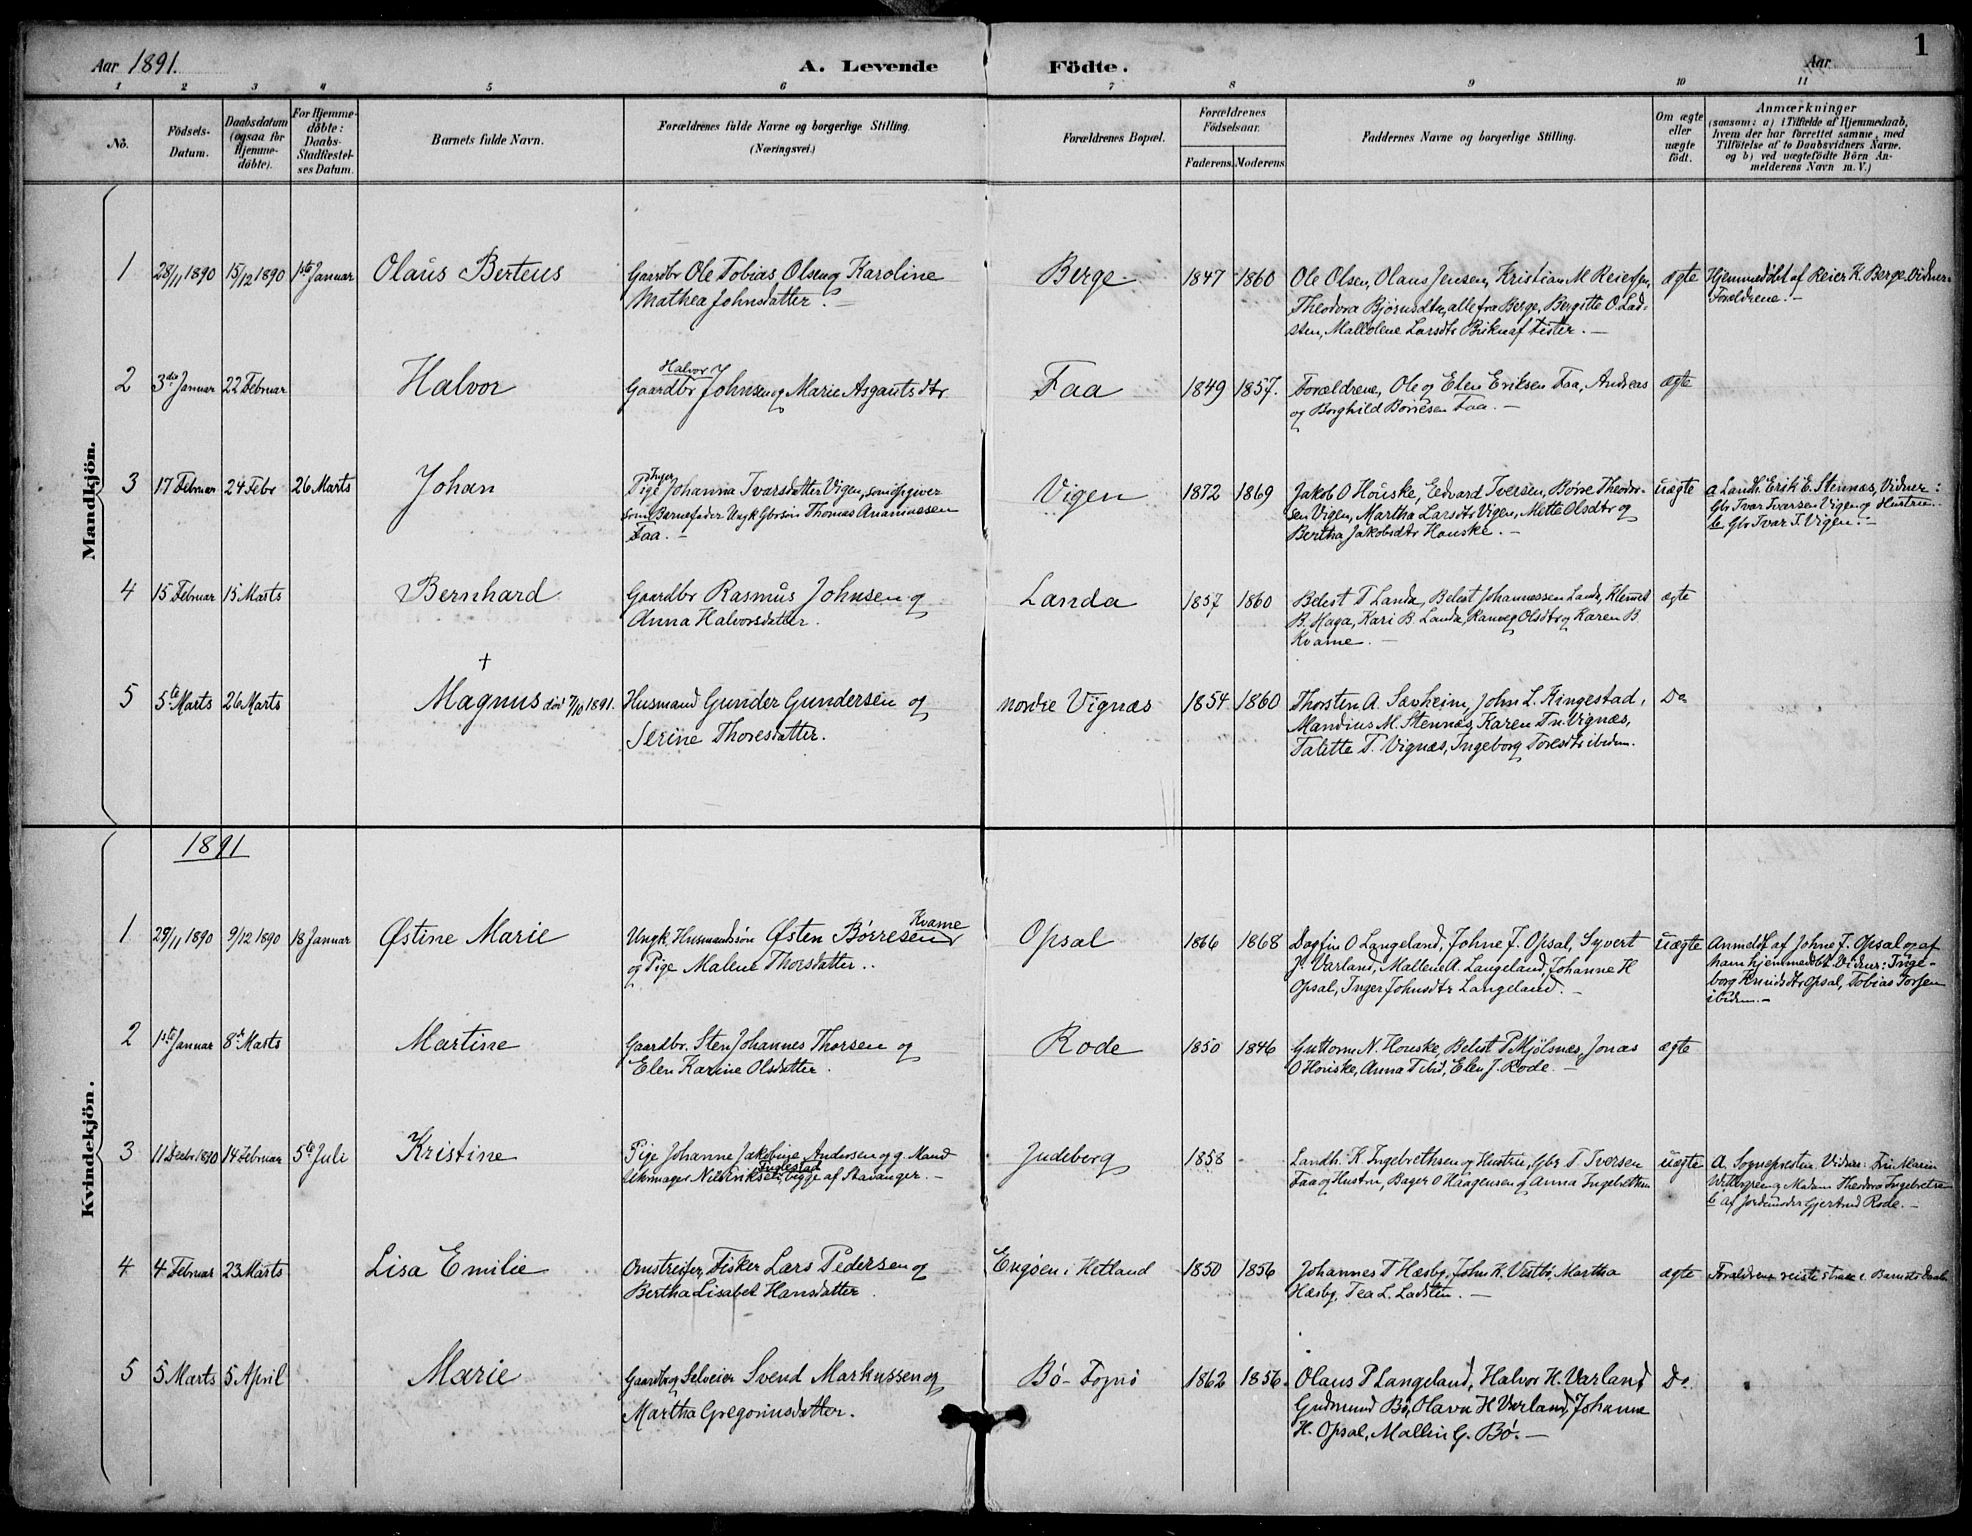 1
Aar 1891. A. Levende Födte. Aar
1 2 3 4 5 6 7 8 9 10 11
No.
Födsels-
Datum.
Daabsdatum
(ogsaa for
Hjemme-
döbte).
For Hjemme-
döbte:
Daabs-
Stadfestel-
ses Datum.
Barnets fulde Navn.
Forældrenes fulde Navne og borgerlige Stilling.
(Næringsvei.)
Forældrenes Bopæl.
Forældrenes
Födselsaar.
Faderens. Moderens.
Faddernes Navne og borgerlige Stilling.
Om ægte
eller
uægte
födt.
Anmærkninger
(saasom: a) i Tilfælde af Hjemmedaab,
hvem der har forrettet samme, med
Tilföielse af to Daabsvidners Navne.
og b) ved uægtefödte Börn An-
melderens Navn m. V.)
Mandkjön.
1 28/11 1890 15/12 1890 1ste Januar Olaus Berteus
Gaardbr Ole Tobias Olsen og Karoline
Mathea Johnsdatter.
Berge 1847 1860
Ole Olsen, Olaus Jensen, Kristian M Reiersen,
Theodora Bjørnsdtr, alle fra Berge, Bergitte O. Lad-
sten, Mallolene Larsdtr af Fister.
ægte
Hjemmedøbt af Reier K. Berge. Vidner:
Forældrene.
2 3die Januar 22 Februar Halvor
Halvor
Gaardbr Johnsen og Marie Asgautsdtr
Faa 1849 1857.
Forældrene, Ole og Elen Eriksen Faa, Andreas
og Borghild Børresen Faa.
ægte
3 17 Februar 24 Febr 26 Marts Johan
Inger
Pige Johanna Ivarsdatter Vigen, som opgiver
som Barnefader Ungk Gbrsøn Thomas Ananiasen
Faa.
Vigen 1872 1869
Jakob O Houske, Edvard Iversen, Børre Theodor-
sen Vigen, Martha Larsdtr Vigen, Mette Olsdtr og
Bertha Jakobsdtr Houske.
uægte
a Landh. Erik E. Stennæs, Vidner:
Gbr Ivar Ivarsen Vigen og Hustru.
b. Gbr Ivar I. Vigen.
4 15 Februar 15 Marts Bernhard
Gaardbr Rasmus Johnsen og
Anna Halvorsdatter.
Landa 1857 1860
Belest T Landa, Belest Johannessen Landa, Klemet
B. Haga, Kari B. Landa, Ranveg Olsdtr og Karen B.
Kvame.
ægte
5 5te Marts 26 Marts Magnus død 7/10 1891.
Husmand Gunder Gundersen og
Serine Thoresdatter.
nordre Vignæs 1854 1860
Thorsten A. Savheim, John L. Ringestad,
Mandius M. Stennæs, Karen T n. Vignæs,
Talette T. Vignæs, Ingeborg Toresdtr ibidem.
Do
Kvindekjön.
1891
1 29/11 1890 9/12 1890 18 Januar Østine Marie
Kvame
Ungk. Husmandssøn Østen Børresen
og Pige Malene Thorsdatter.
Opsal 1866 1868
Dagfin O Langeland, Johne J. Opsal, Syvert
J. Varland, Maltene A. Langeland, Johanne H
Opsal, Inger Johnsdtr Langeland.
uægte
Anmeldt af Johne J. Opsal og af
ham hjemmedøbt. Vidner: Inge-
borg Knudsdtr Opsal, Tobias Torsen
ibidem.
2 1ste Januar 8de Marts Martine
Gaardbr. Sten Johannes Thorsen og
Elen Karine Olsdatter.
Rode 1850 1846
Guttorm N. Houske, Belest P Mjølsnæs, Jonas
O Houske, Anna T ibid, Elen J. Rode.
ægte
3 11 Decbr 1890 14 Februar 5te Juli Kristine
Pige Johanne Jakobine Andersen og g. Mand
Inglestad
Uhrmager Nils Eriksen, begge af Stavanger.
Judeberg 1858
Landh. K Ingebrethsen og Hustru, Gbr T Iversen
Faa og Hustru, Bager O Haagensen og Anna Ingebrethsen
uægte
A. Sognepresten. Vidner: Fru Maren
og Madam Theodora Ingebretsen
b af Jordemoder Gjertrud Rode.
4 4 Februar 23 Marts Lisa Emilie
Omstreifer, Fisker Lars Pedersen og
Bertha Lisabet Hansdatter.
Engøen i Hetland 1850 1856
Johannes T Hæsby, John K. Vestbø, Martha
Hæsby, Tea L. Ladsten.
ægte
Forældrene reiste strax e. Barnets Daab
5 5 Marts 5 April Marie
Gaardbr og Selveier Svend Markussen og
Martha Gregoriusdatter.
Bø - Fognø 1862 1856.
Olaus P Langeland, Halvor H. Varland
Gudmund Bø, Olava H Varland, Johanne
H. Opsal, Mallin G. Bø.
Do